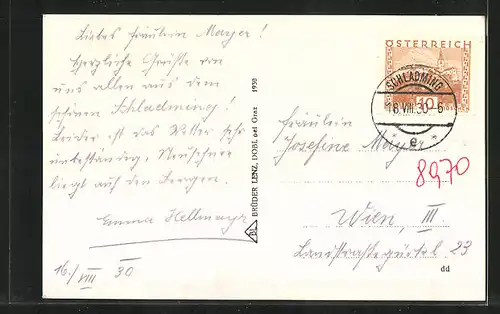 Liebes Fräulein Mayer!
Herzliche Grüße von
uns allen aus dem
schönen Schladming!
Leider ist das Wetter sehr
unbeständig, Neuschnee
liegt auf den Bergen.
Emma Hellmayr
16./VIII 30
BRÜDER LENZ, DOBL bei Graz 1930
ÖSTERREICH
10
SCHLADMING
16.VIII.30-6
e
Fräulein
Josefine Mayer
8970
Wien, III.
Landstraßegürtel 23
dd